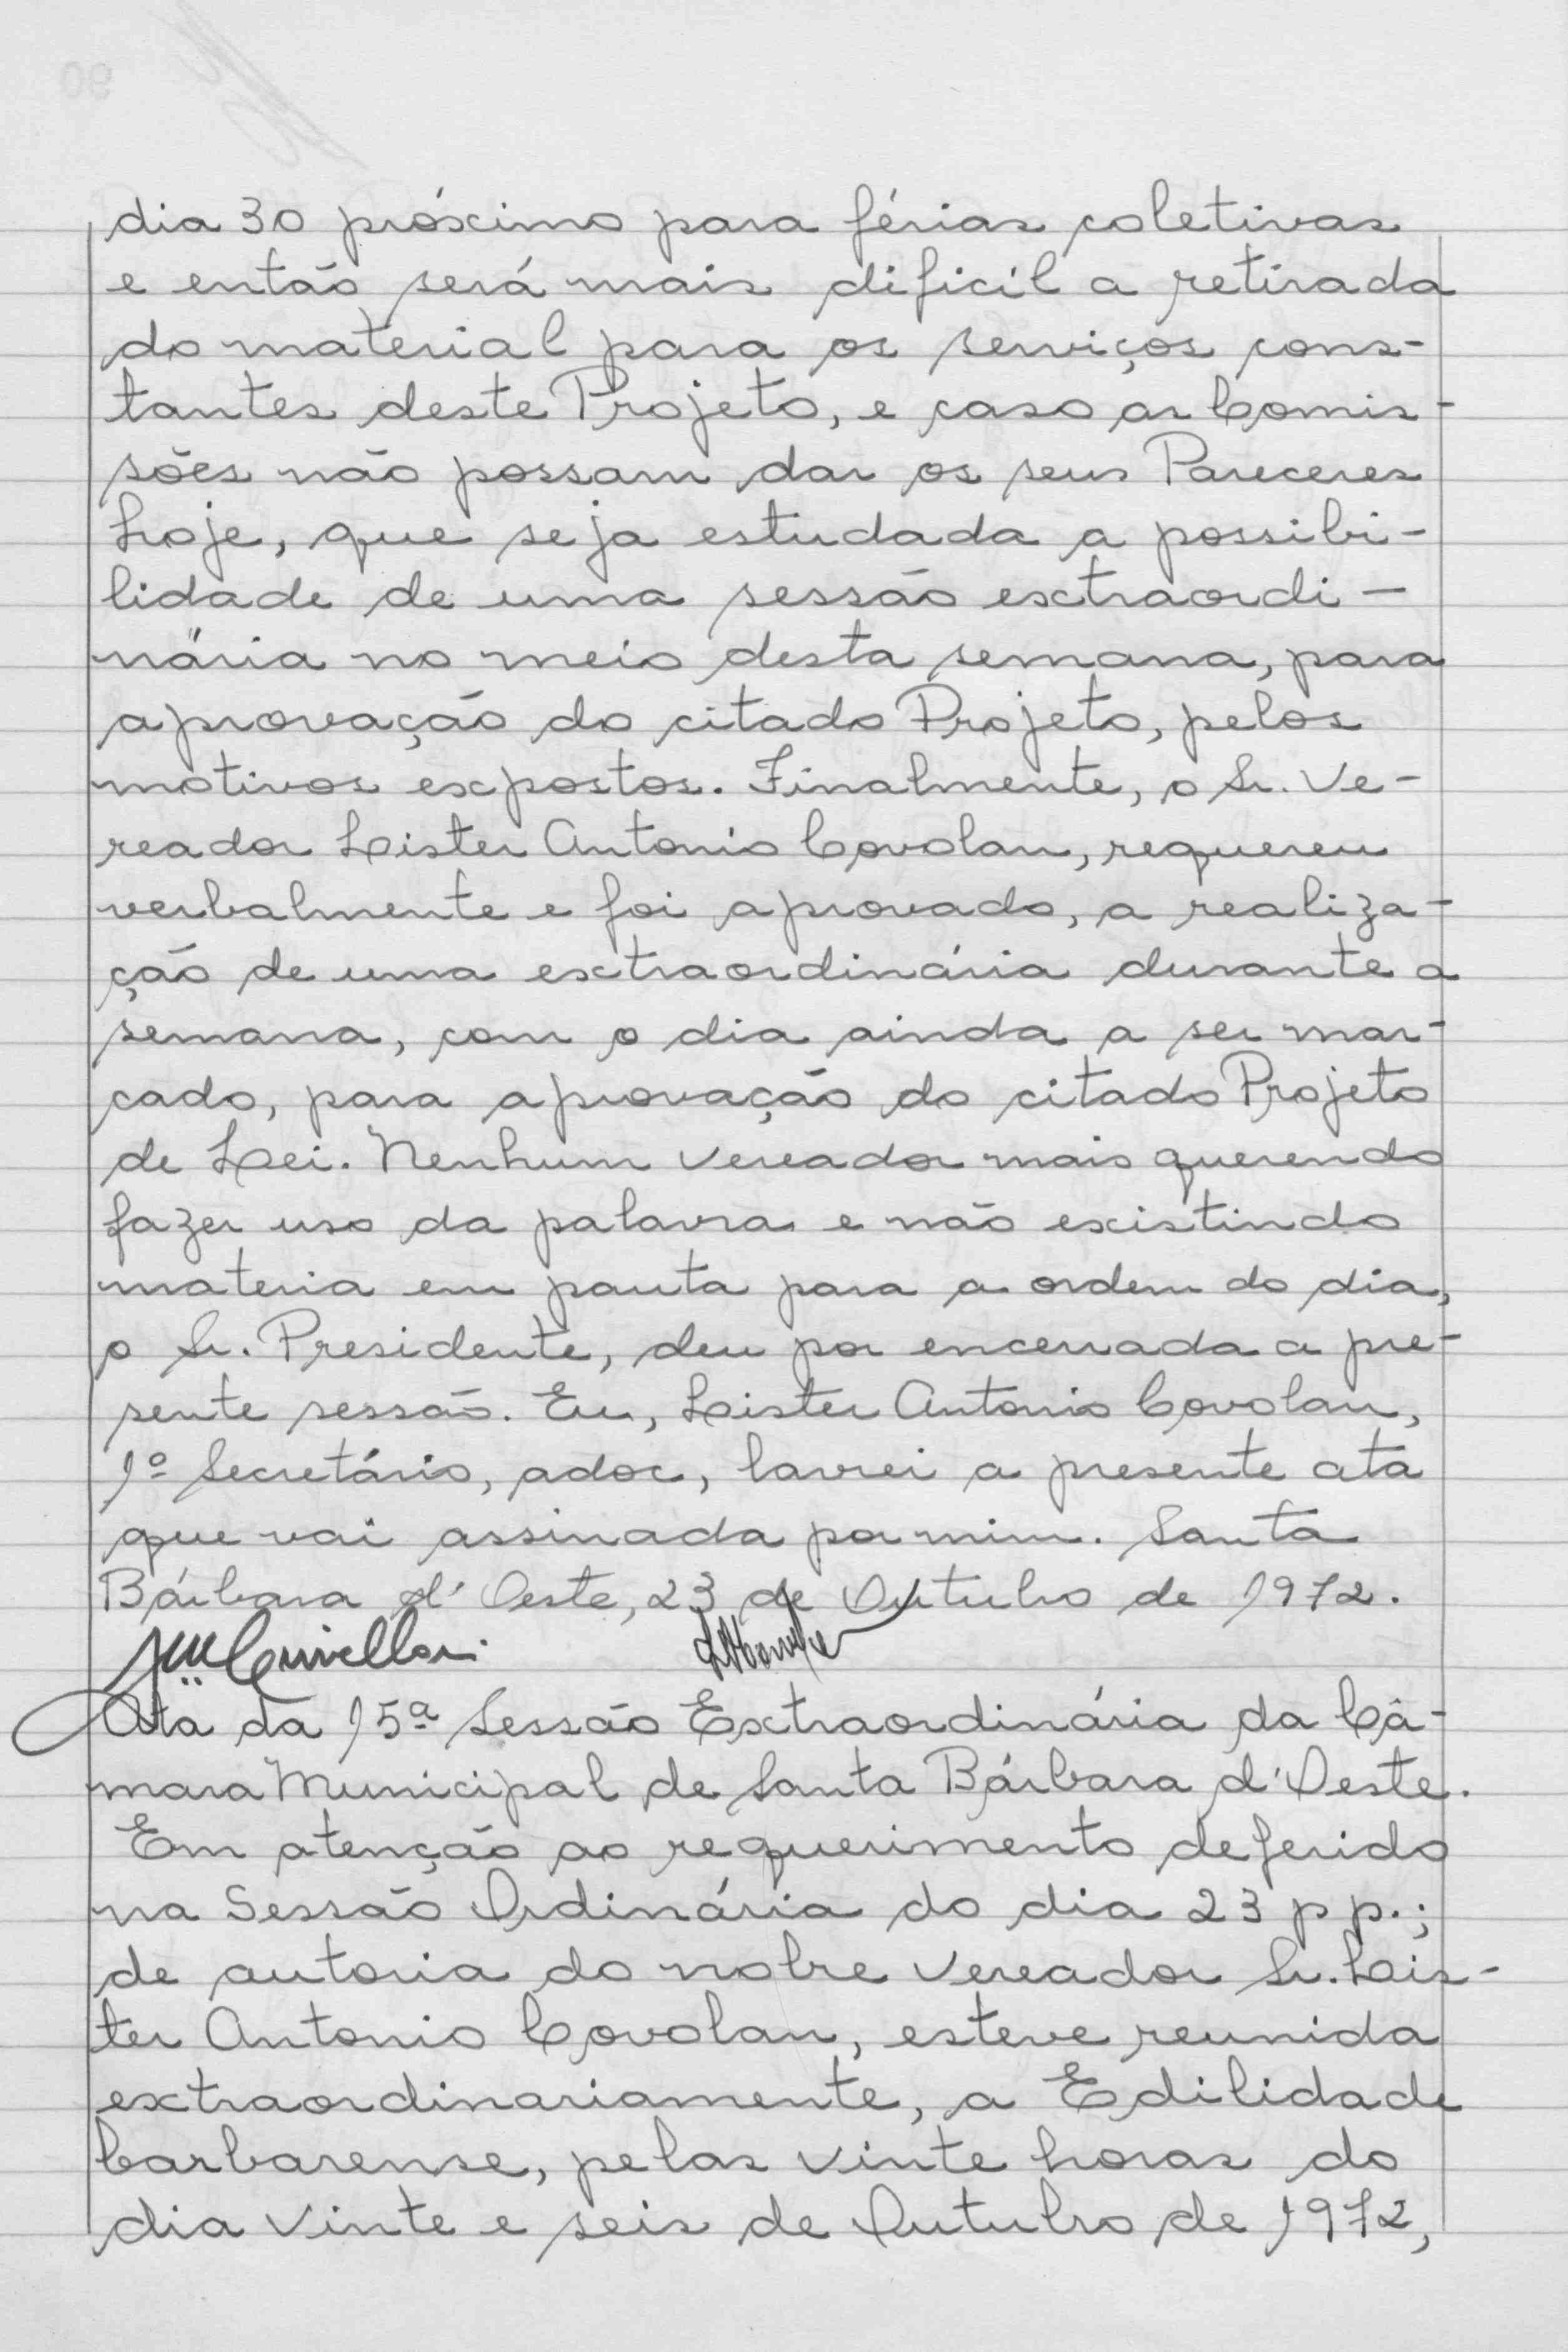 dia 30 próximo para férias coletivas
e então será mais dificil a retirada
do material para os serviços cons-
tantes deste Projeto, e caso as Comis-
sões não possam dar os seus Pareceres
hoje, que seja estudada a possibi-
lidade de uma sessão extraordi-
nária no meio desta semana, para
aprovação do citado Projeto, pelos
motivos expostos. Finalmente, o Sr. Ve-
reador Lister Antonio Covolan, requereu
verbalmente e foi aprovado, a realiza-
ção de uma extraordinária durante a
semana, com o dia ainda a ser mar-
cado, para aprovação do citado Projeto
de Lei. Nenhum vereador mais querendo
fazer uso da palavra e não existindo
materia em pauta para a ordem do dia,
o Sr. Presidente, deu por encerrada a pre-
sente sessão. Eu, Lister Antonio Covolan,
1º Secretário, adoc, lavrei a presente ata
que vai assinada por mim. Santa
Bárbara d'Oeste, 23 de Outubro de 1972.
Ata da 15ª Sessão Extraordinária da Câ-
mara Municipal de Santa Bárbara d'Oeste.
Em atenção ao requerimento deferido
na Sessão Ordinária do dia 23 p p.;
de autoria do nobre vereador Sr. Lis-
ter Antonio Covolan, esteve reunida
extraordinariamente, a Edilidade
barbarense, pelas vinte horas do
dia vinte e seis de Outubro de 1972,